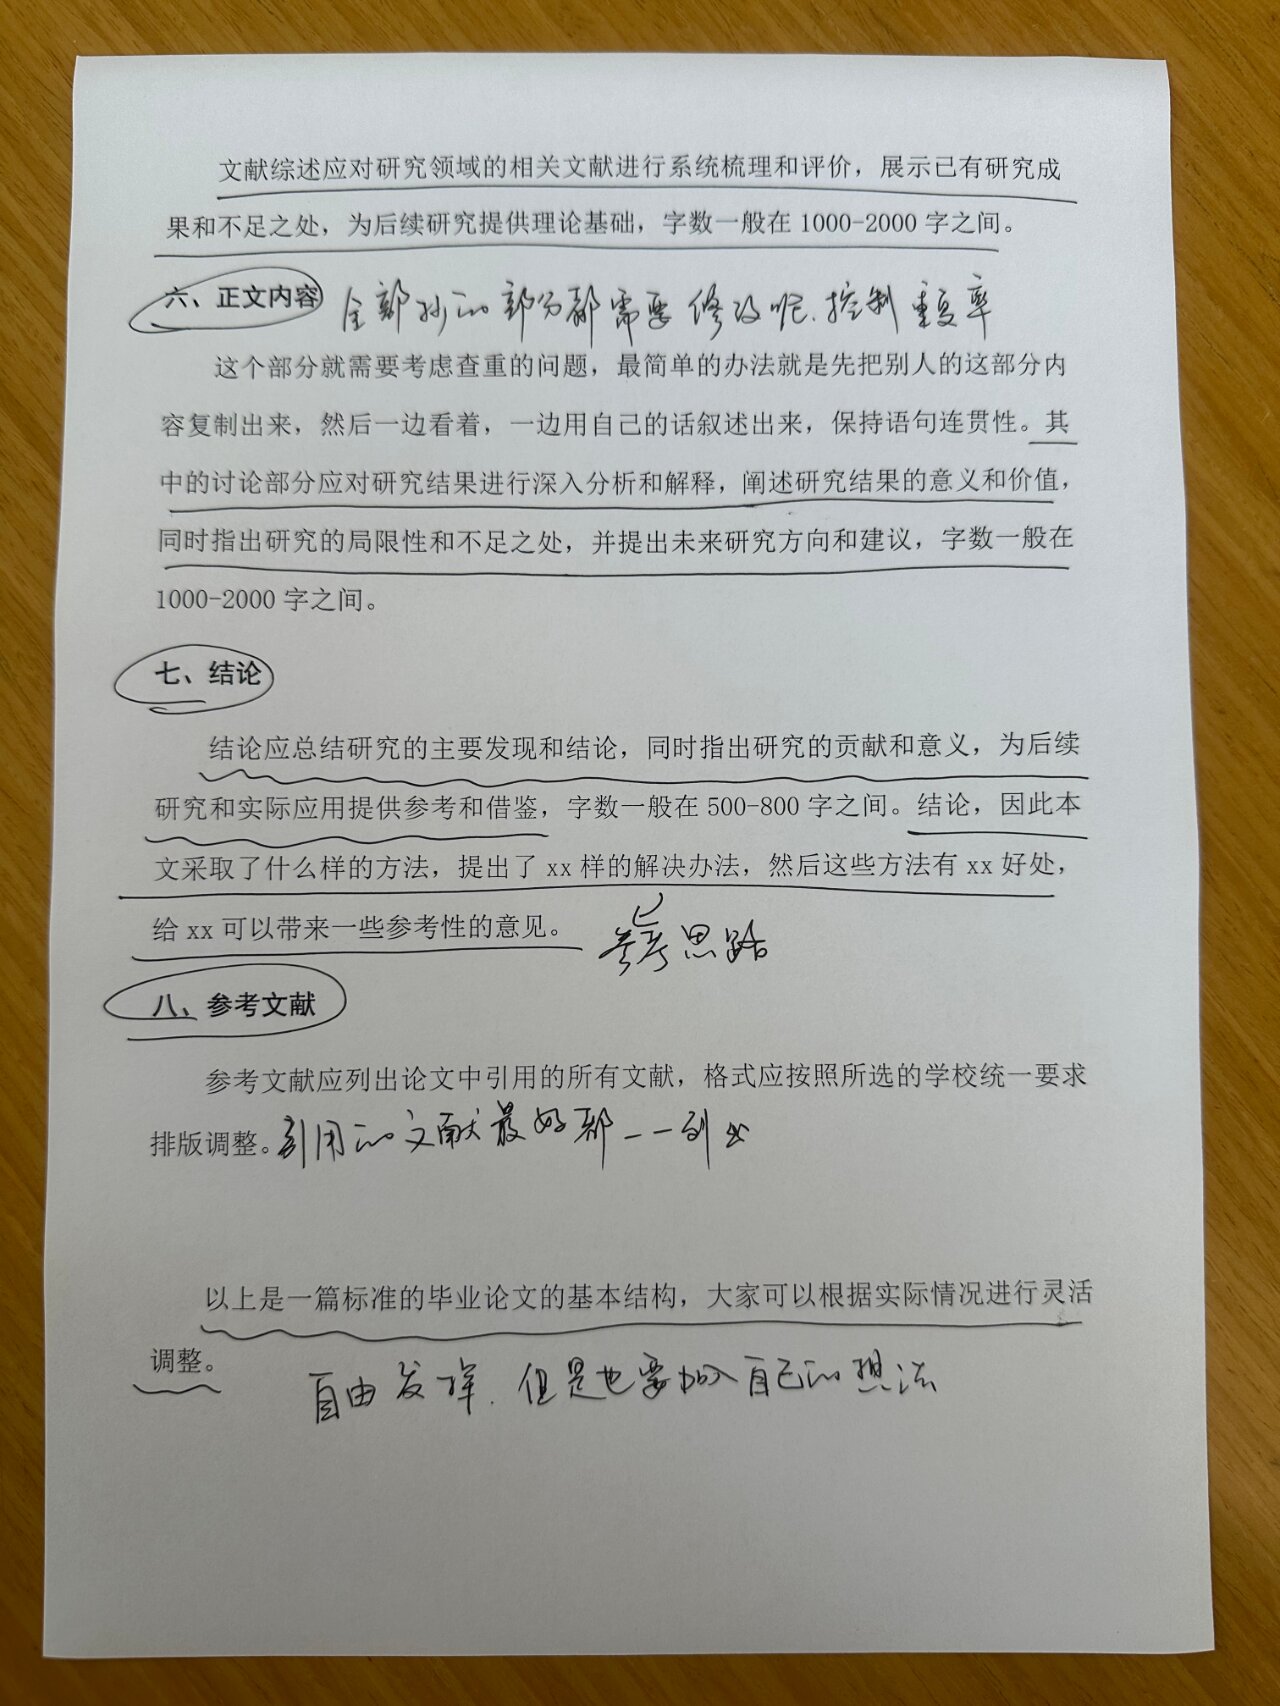 文献综述应对研究领域的相关文献进行系统梳理和评价，展示已有研究成
果和不足之处，为后续研究提供理论基础，字数一般在1000-2000字之间。
六、正文内容 全部抄的部分都需要修改呢、控制重复率
这个部分就需要考虑查重的问题，最简单的办法就是先把别人的这部分内
容复制出来，然后一边看着，一边用自己的话叙述出来，保持语句连贯性。其
中的讨论部分应对研究结果进行深入分析和解释，阐述研究结果的意义和价值，
同时指出研究的局限性和不足之处，并提出未来研究方向和建议，字数一般在
1000-2000字之间。
七、结论
结论应总结研究的主要发现和结论，同时指出研究的贡献和意义，为后续
研究和实际应用提供参考和借鉴，字数一般在500-800字之间。结论，因此本
文采取了什么样的方法，提出了xx样的解决办法，然后这些方法有xx好处，
给xx可以带来一些参考性的意见。 参考思路
八、参考文献
参考文献应列出论文中引用的所有文献，格式应按照所选的学校统一要求
排版调整。引用的文献最好都一一列出
以上是一篇标准的毕业论文的基本结构，大家可以根据实际情况进行灵活
调整。
自由发挥.但是也要加入自己的想法